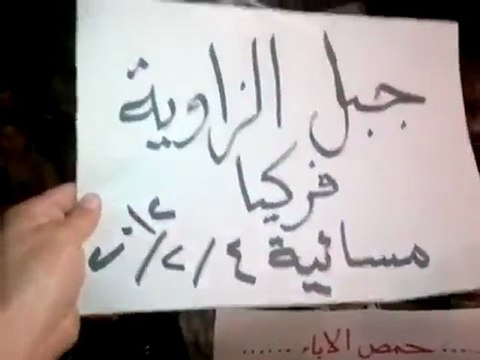 جبل الزاوية
فركيا
مسائية ٤/٢/١٢
حمص الاباء ......